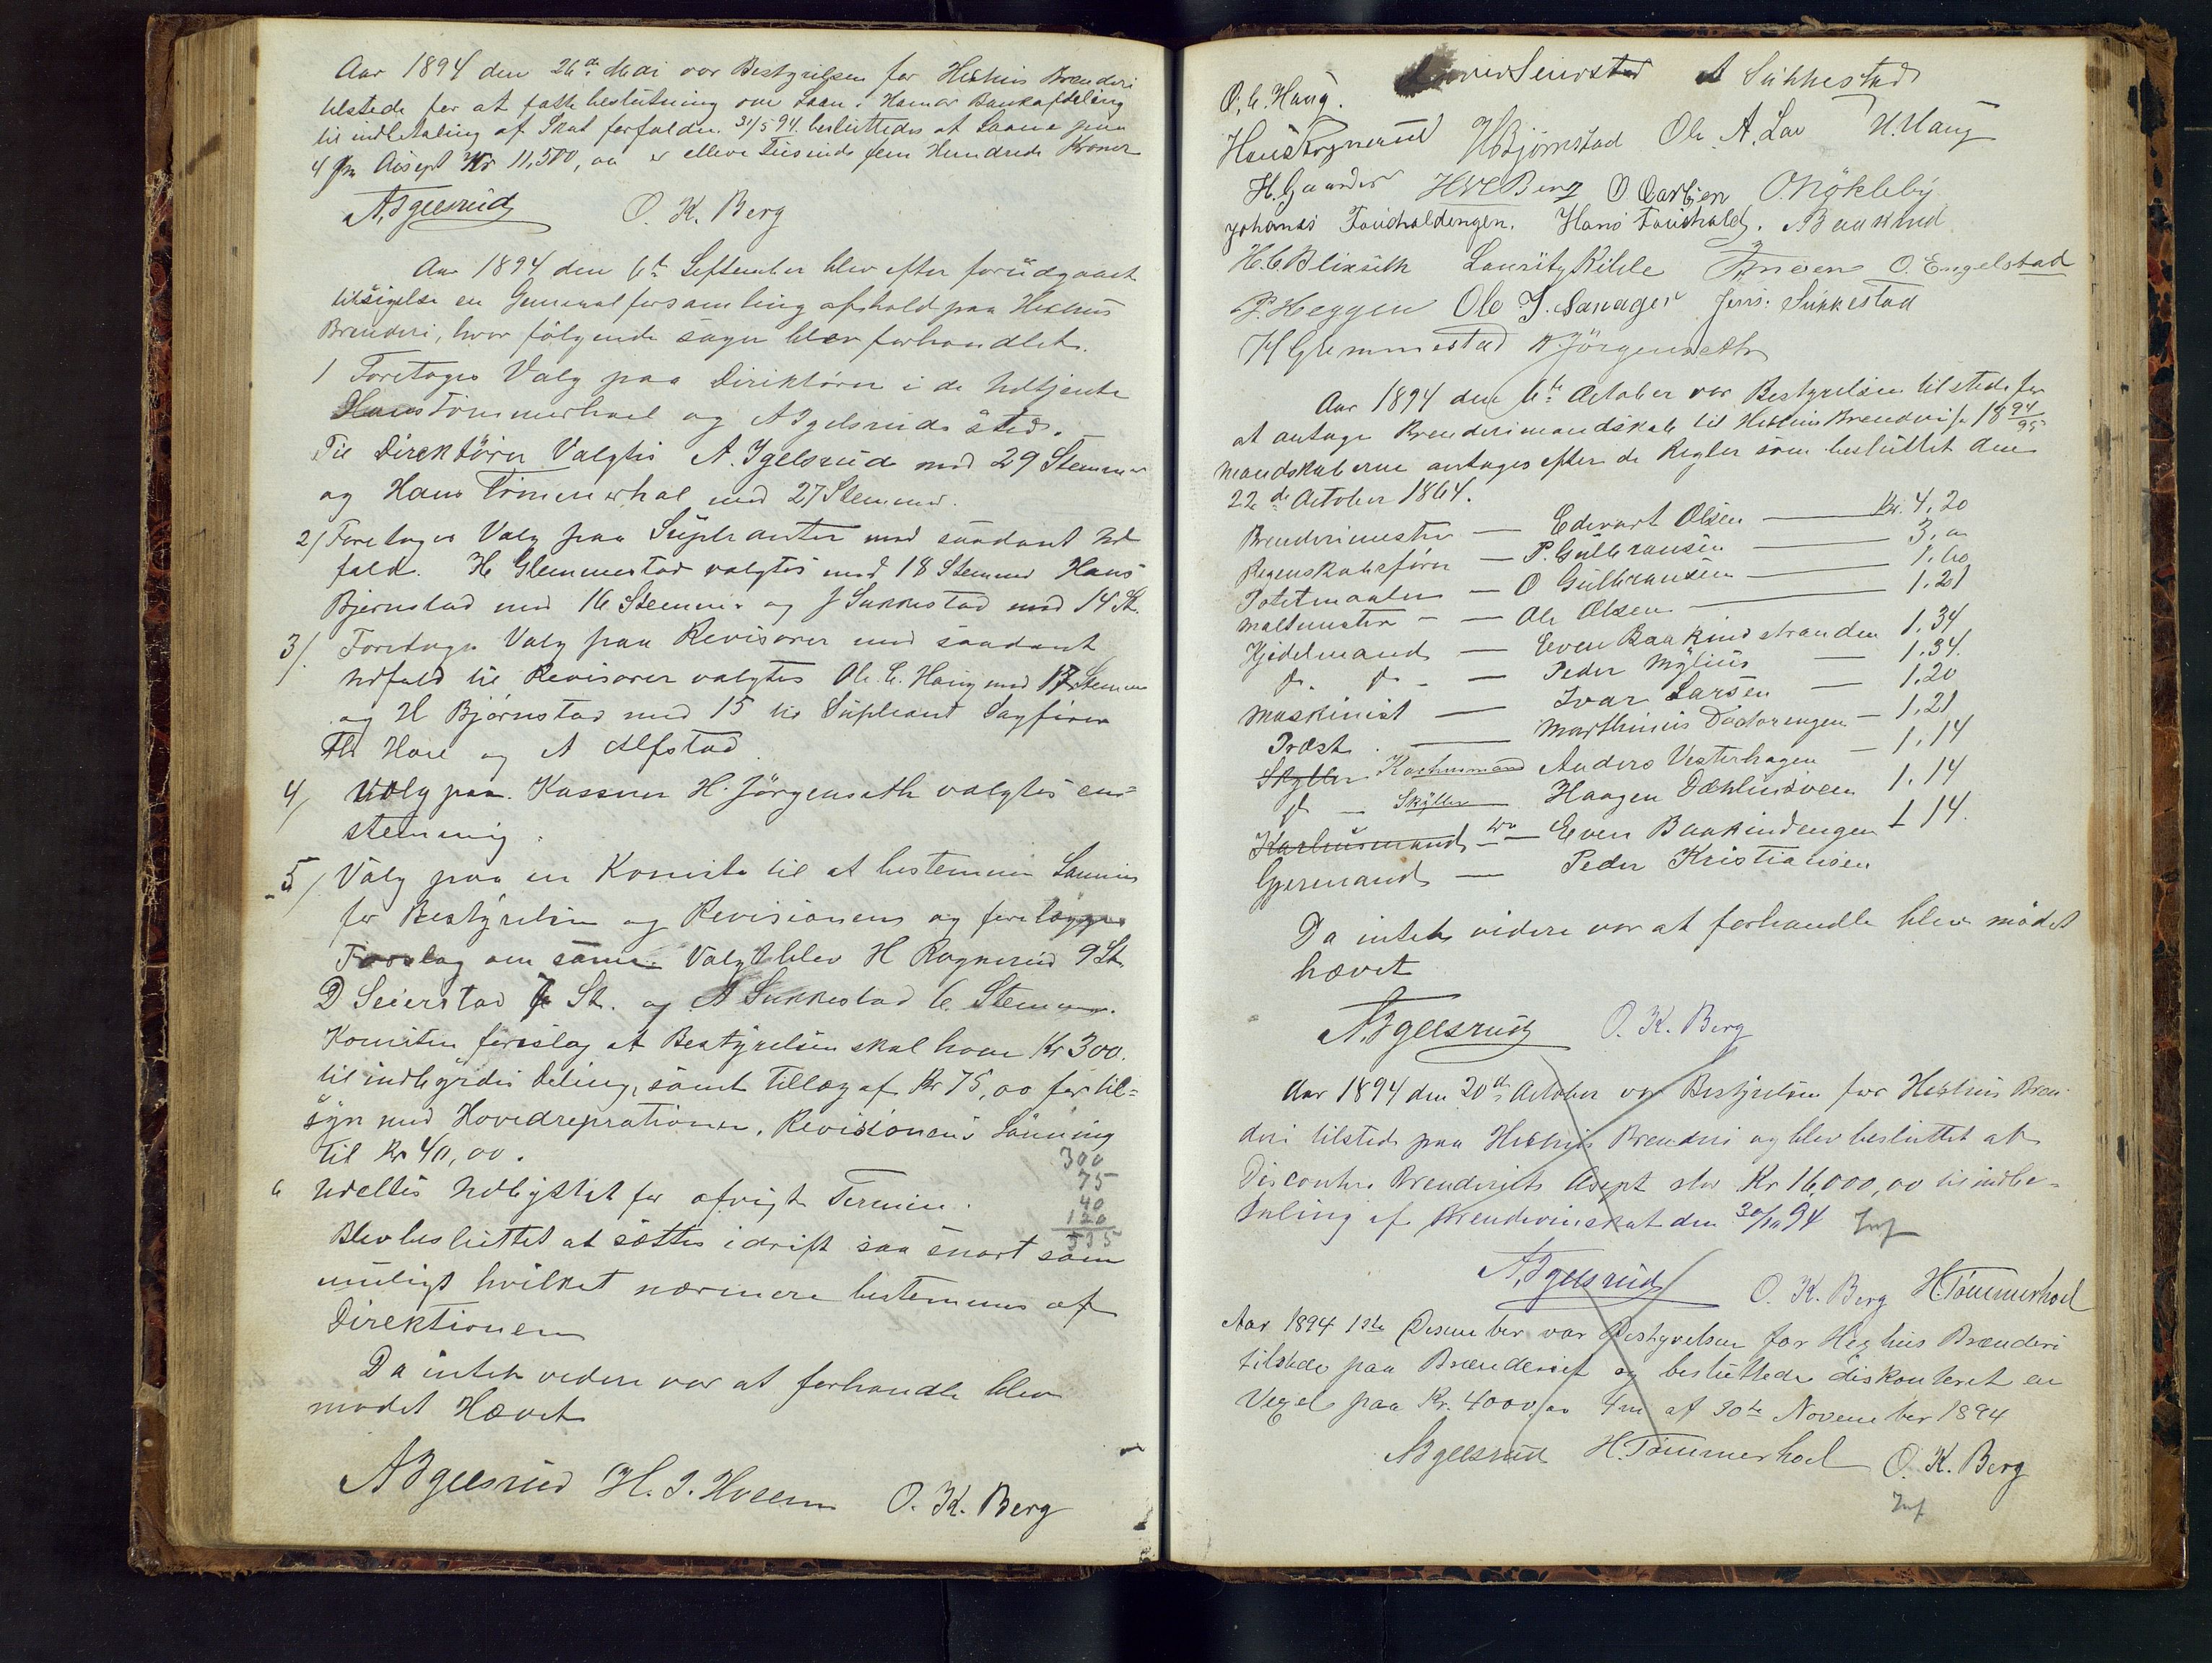 Aar 1894 den 26de Mai var Bestyrelsen for Hexhus Brænderi
tilstede for at fatte beslutning om Laan i Hamar Bankafdeling
til indbetaling af Skat forfalden 31/5 94. besluttedes at laane paa
4 Accept Kr 11,500,00 er elleve Tusinde fem Hundrede Kroner
A. Igelsrud O. K. Berg
Aar 1894 den 6te September blev efter forudgaaet
tilsigelse en Generalforsamling afholdt paa Hexhus
Brenderi, hvor følgende sager blev forhandlet.
1 Foretages Valg paa Direktører i de Udtjente
Hans Tömmerhoel og A Igelsruds sted.
Til Direktörer Valgtes A. Igelsrud med 29 Stemmer
og Hans Tömmerhol med 27 Stemmer.
2/ Foretages Valg paa Suplianter med saadant Ud
fald. H Glemmestad valgtes med 18 Stemmer Hans
Bjørnstad med 16 Stemmer og J Sukkestad med 14 St.
3/. Foretages Valg paa Revisorer med saadant
Udfald til Revisorer valgtes Ole C. Haug med 17 Stemmer
og H Bjørnstad med 15 til Supleant Sagfører
Th Hoel og A Alfstad
4/ Valg paa Kasserer H. Jörgensæth valgtes een=
stemmig.
5/ Valg paa en Komite til at bestemme Lønnen
for Bestyrelsen og Revisionens og forelægge
Forslag om samme Valgt blev H Rognerud 9 St.
D Seierstad St. og A Sukkestad 6 Stemmer.
Komiten foreslog at Bestyrelsen skal have Kr 300.
til indbyrdes Deling, samt Tillæg af Kr 75,00 for til=
syn med Hovedreprationer. Revisionens Lønning
til Kr 40,00.
300
75
40
120
535
6 Udeltes Udbyttet for afvigte Termin.
Blev besluttet at sættes i drift saa snart som
muligt hvilket nærmere bestemmes af
Direktionen
Da intet videre var at forhandle blev
mødet Hævet
A Igelsrud H. J. Hveem O. K. Berg
O. C. Haug. Seierstad A Sukkestad
Hans Rognerud H Bjørnstad Ole A. Lae H. Haug
H. Gaarder H Berg O Carlsen O. Nökleby
Johanes Foushaldengen. Hans Foushald. A Baakind
H. C Blixeth Lauritz Kihle O. Engelstad
P. Heggen Ole J. Sanager Jens. Sukkestad
H Glemmestad H Jörgensæth
Aar 1894 den 6te October var Bestyrelsen tilstede for
at antage Brenderimandskab til Hexhus Brenderi for 1894/95
mandskaberne antages efter de Regler som besluttet den
22de October 1864.
Brenderimester — Edvart Olsen — Kr. 4,20
Regenskabsförer — P. Gulbransen — 3,00
Potetmaaler — O Gulbransen — 1,60
Maltmester — Ole Olsen — 1,21
Kjedelmand — Even Baakindstranden 1.34
do. do. — Peder Mylius — 1.34.
Maskinist — Ivar Larsen — 1,20
Præst. — Marthinus Dadarengen — 1,21
Skyller Karhusmand Anders Vesterhagen — 1,14
do — Skyller Haagen Dæhlinsveen 1.14
Karhusmand do — Even Baakindengen 1 14.
Gjermand — Peder Kristiansen
Da intet videre var at forhandle blev mødet
hævet
A. Igelsrud O. K. Berg
Aar 1894 den 20de October var Bestyrelsen for Hexhus Bren
deri tilstede paa Hexhus Brenderi og blev besluttet at
Discontere Brenderiets Acept stor Kr 16,000,00 til indbe=
taling af Brendevinskat den 30/10 94
A. Igelsrud O. K. Berg H. Tömmerhoel
Aar 1894 1ste Desember var Bestyrelsen for Hexhus Brænderi
tilstede paa Brænderiet og besluttede diskonteret en
Vexel paa Kr. 4000,00 4m af 30te November 1894
A Igelsrud H. Tömmerhoel O. K. Berg